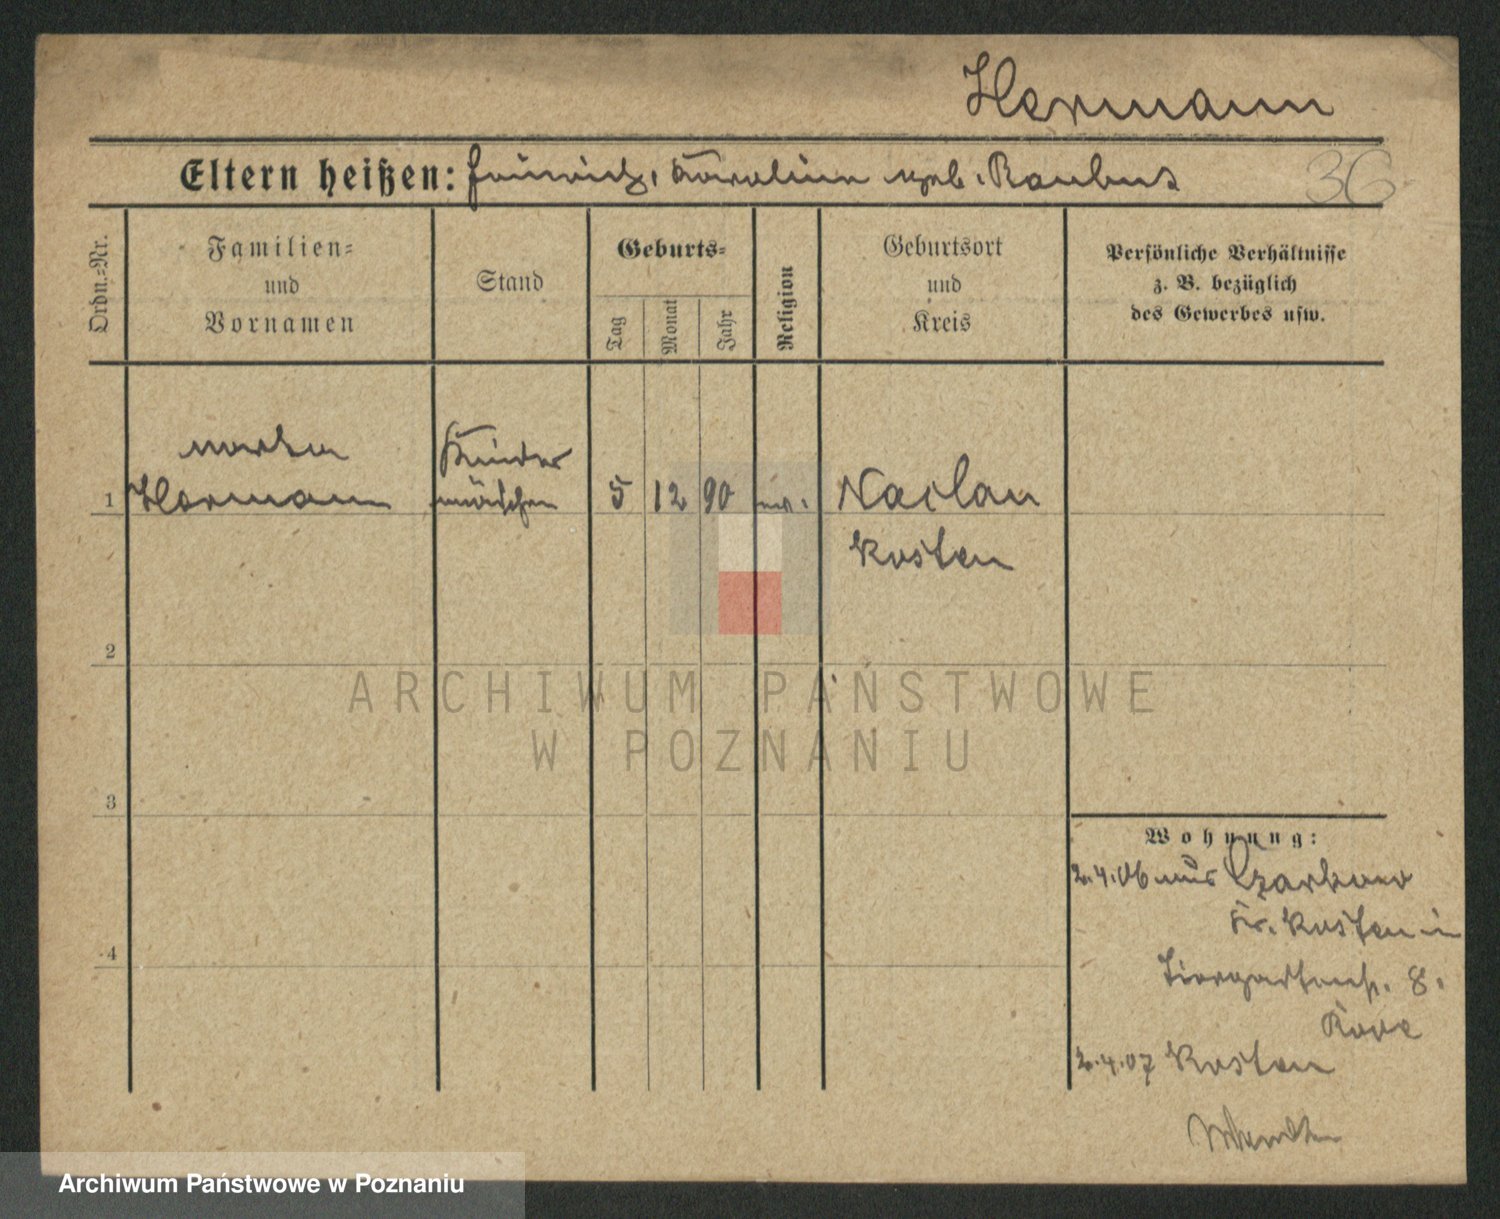 Hermann
Eltern heißen: Heinrich, Karoline geb. Raubus
36
Ordn.=Nr.
Familien=
und
Vornamen
Stand
Geburts=
Tag
Monat
Jahr
Religion
Geburtsort
und
Kreis
Persönliche Verhältnisse
z. B. bezüglich
des Gewerbes usw.
Martha
Kinder
1 Hermann mädchen 5 12 90 ev. Naclau
Kosten
2
ARCHIWUM PAŃSTWOWE
W POZNANIU
3
Wohnung:
2.4.06 aus Czarkowo
Kr. Kosten in
4
Tiergartenstr. 8.
2.4.07 Kosten
Archiwum Państwowe w Poznaniu